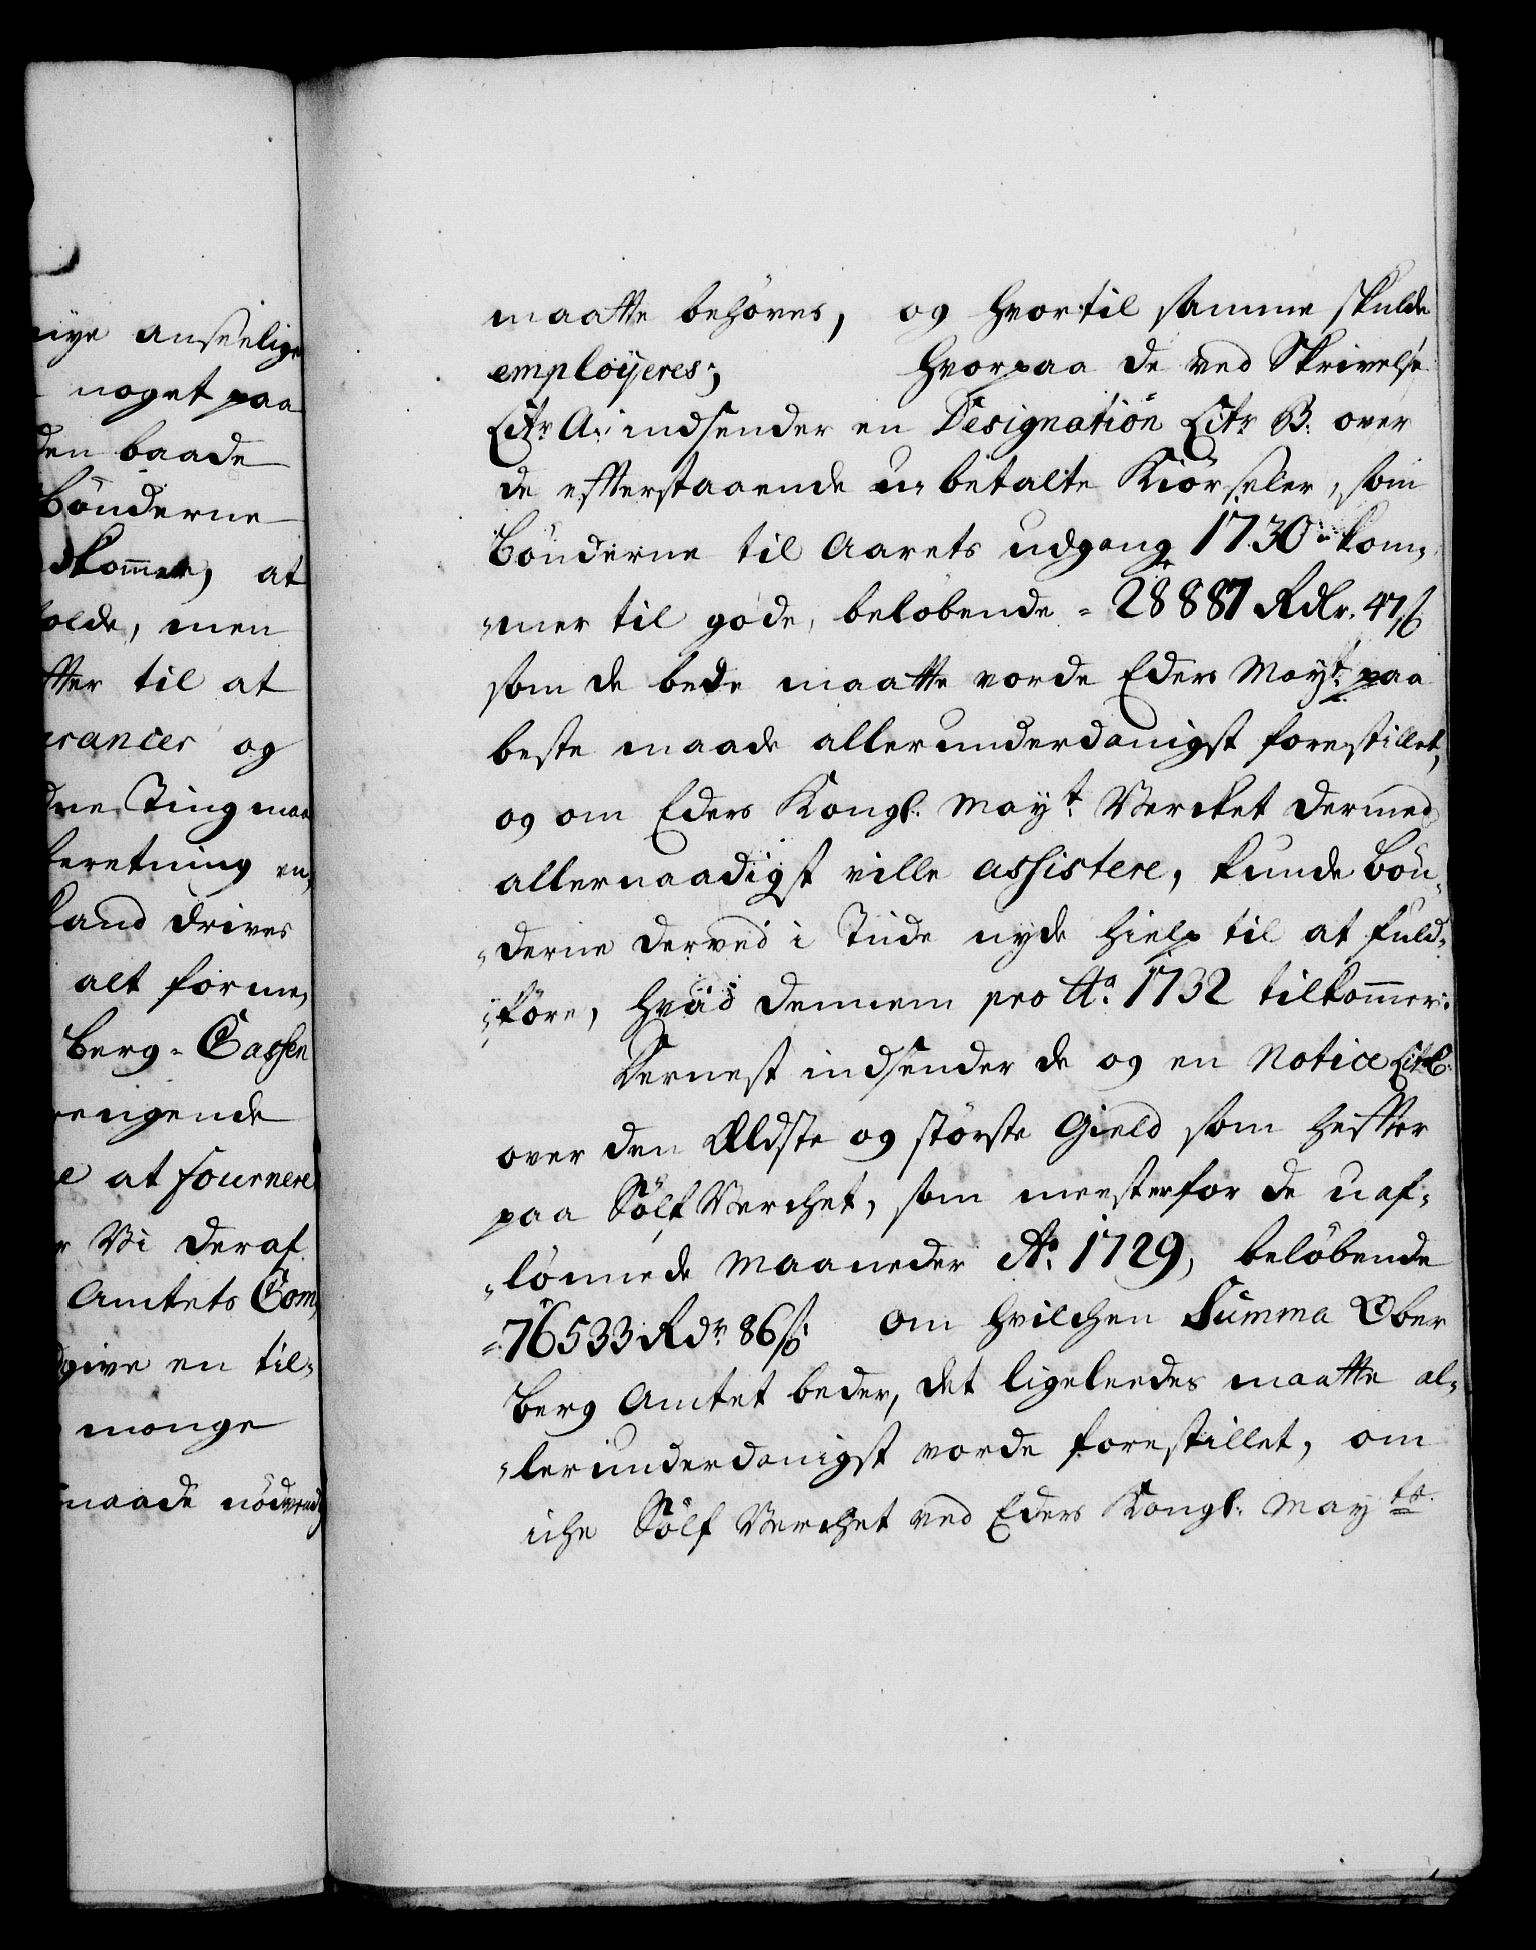 niye anseelige
noget paa
den baade
Bönderne
kom̄er, at
holde, men
ter til at
rancer og
dne Ting maa
beretning en,
land drives
alt forme,
Berg-Cassen
rengende
e at fournere
r Vi deraf
Amtets Com,
dgive en til-
monge
maade nödvend
maatte behöves, og hvortil samme skulde
employeres; hvorpaa de ved Skrivelse
Litr A: indsender en Designation Litr B. over
de efterstaaende u-betalte Kiörseler, som
Bönderne til Aarets udgang 1730 kom-
-mer til gode, belöbende = 28887 Rdlr. 47 ß
som de bede maatte vorde Eders Mayt: paa
beste maade allerunderdanigst forestillet,
og om Eders Kongl. Mayt: Vercket dermed
allernaadigst ville assistere, kunde Bön-
-derne derved i Tiide nyde hielp til at fuld-
-före, hvad dennem pro Ao. 1732 tilkom̄er.
Dernest indsender de og en Notice Litr C.
over den Ældste og störste Gield som hefter
paa Sölf Verchet, som meesten for de uaf-
-lönnede Maaneder Ao. 1729, belöbende
=76533 Rdr 86 ß om hvilchen Summa Ober
Berg Amtet beder, det ligeleedes maatte al-
-lerunderdanigst vorde forestillet, om
iche Sölf Verchet ved Eders Kongl. Mayts.